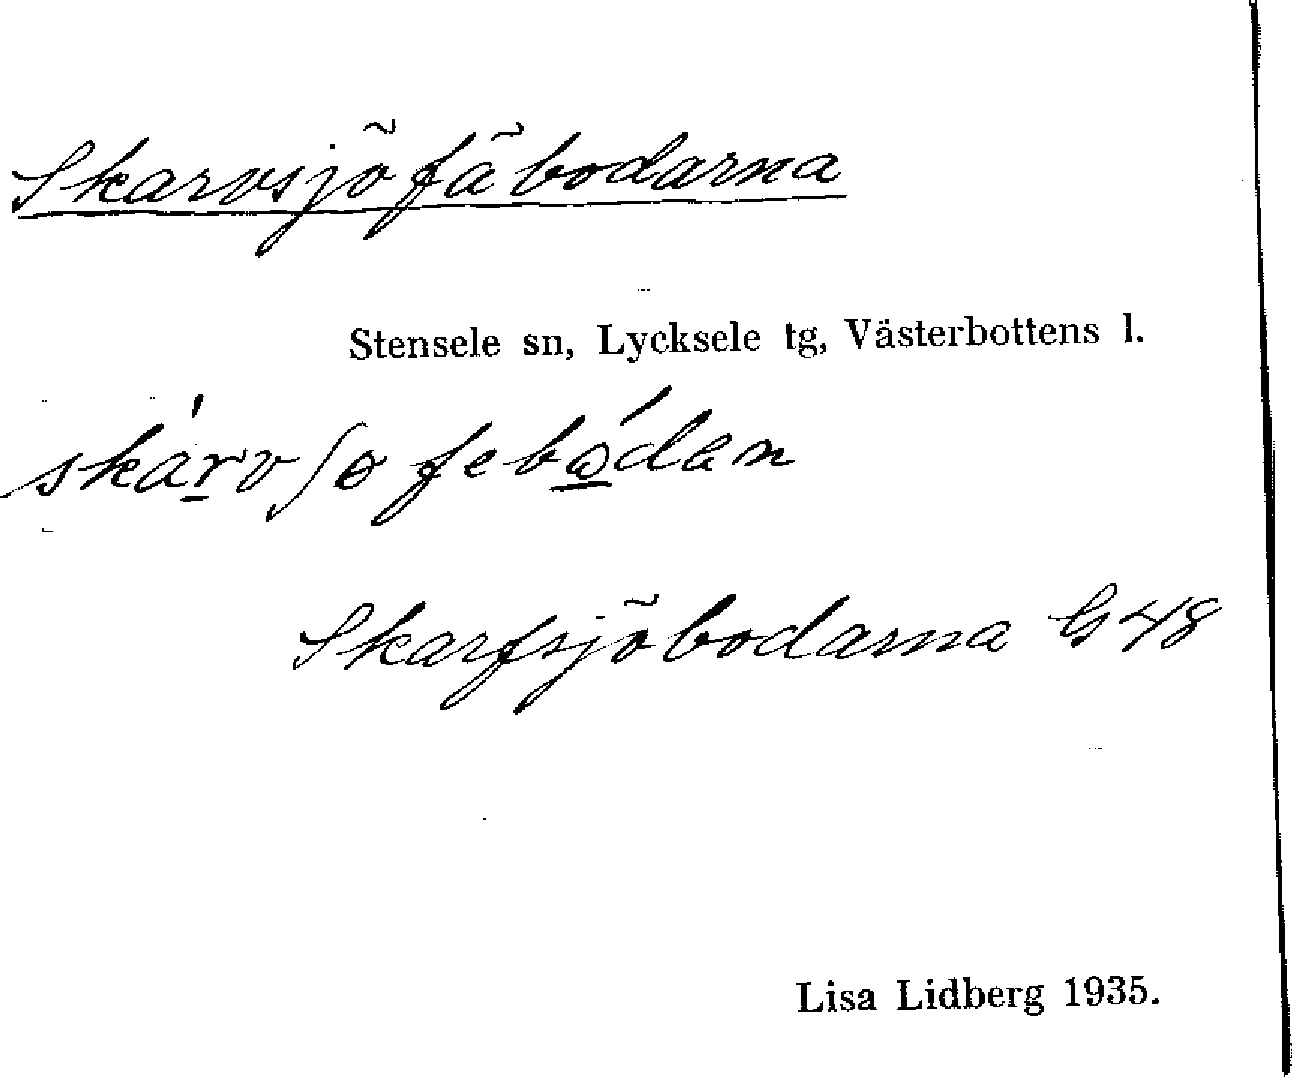 Skarvsjöfäbodarna
Stensele sn, Lycksele tg, Västerbottens l.
skárvʃɵ febódan
Skarfsjöbodarna G 48
Lisa Lidberg 1935.